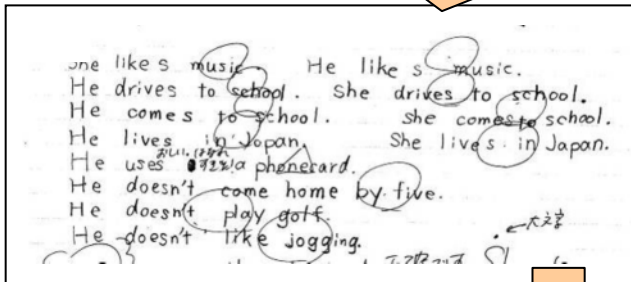 She likes music. He likes music.
He drives to school. She drives to school.
He comes to school. She comes to school.
He lives in Japan. She lives in Japan.
He uses a phonecard.
He doesn't come home by five.
He doesn't play golf.
大文字
He doesn't like jogging.